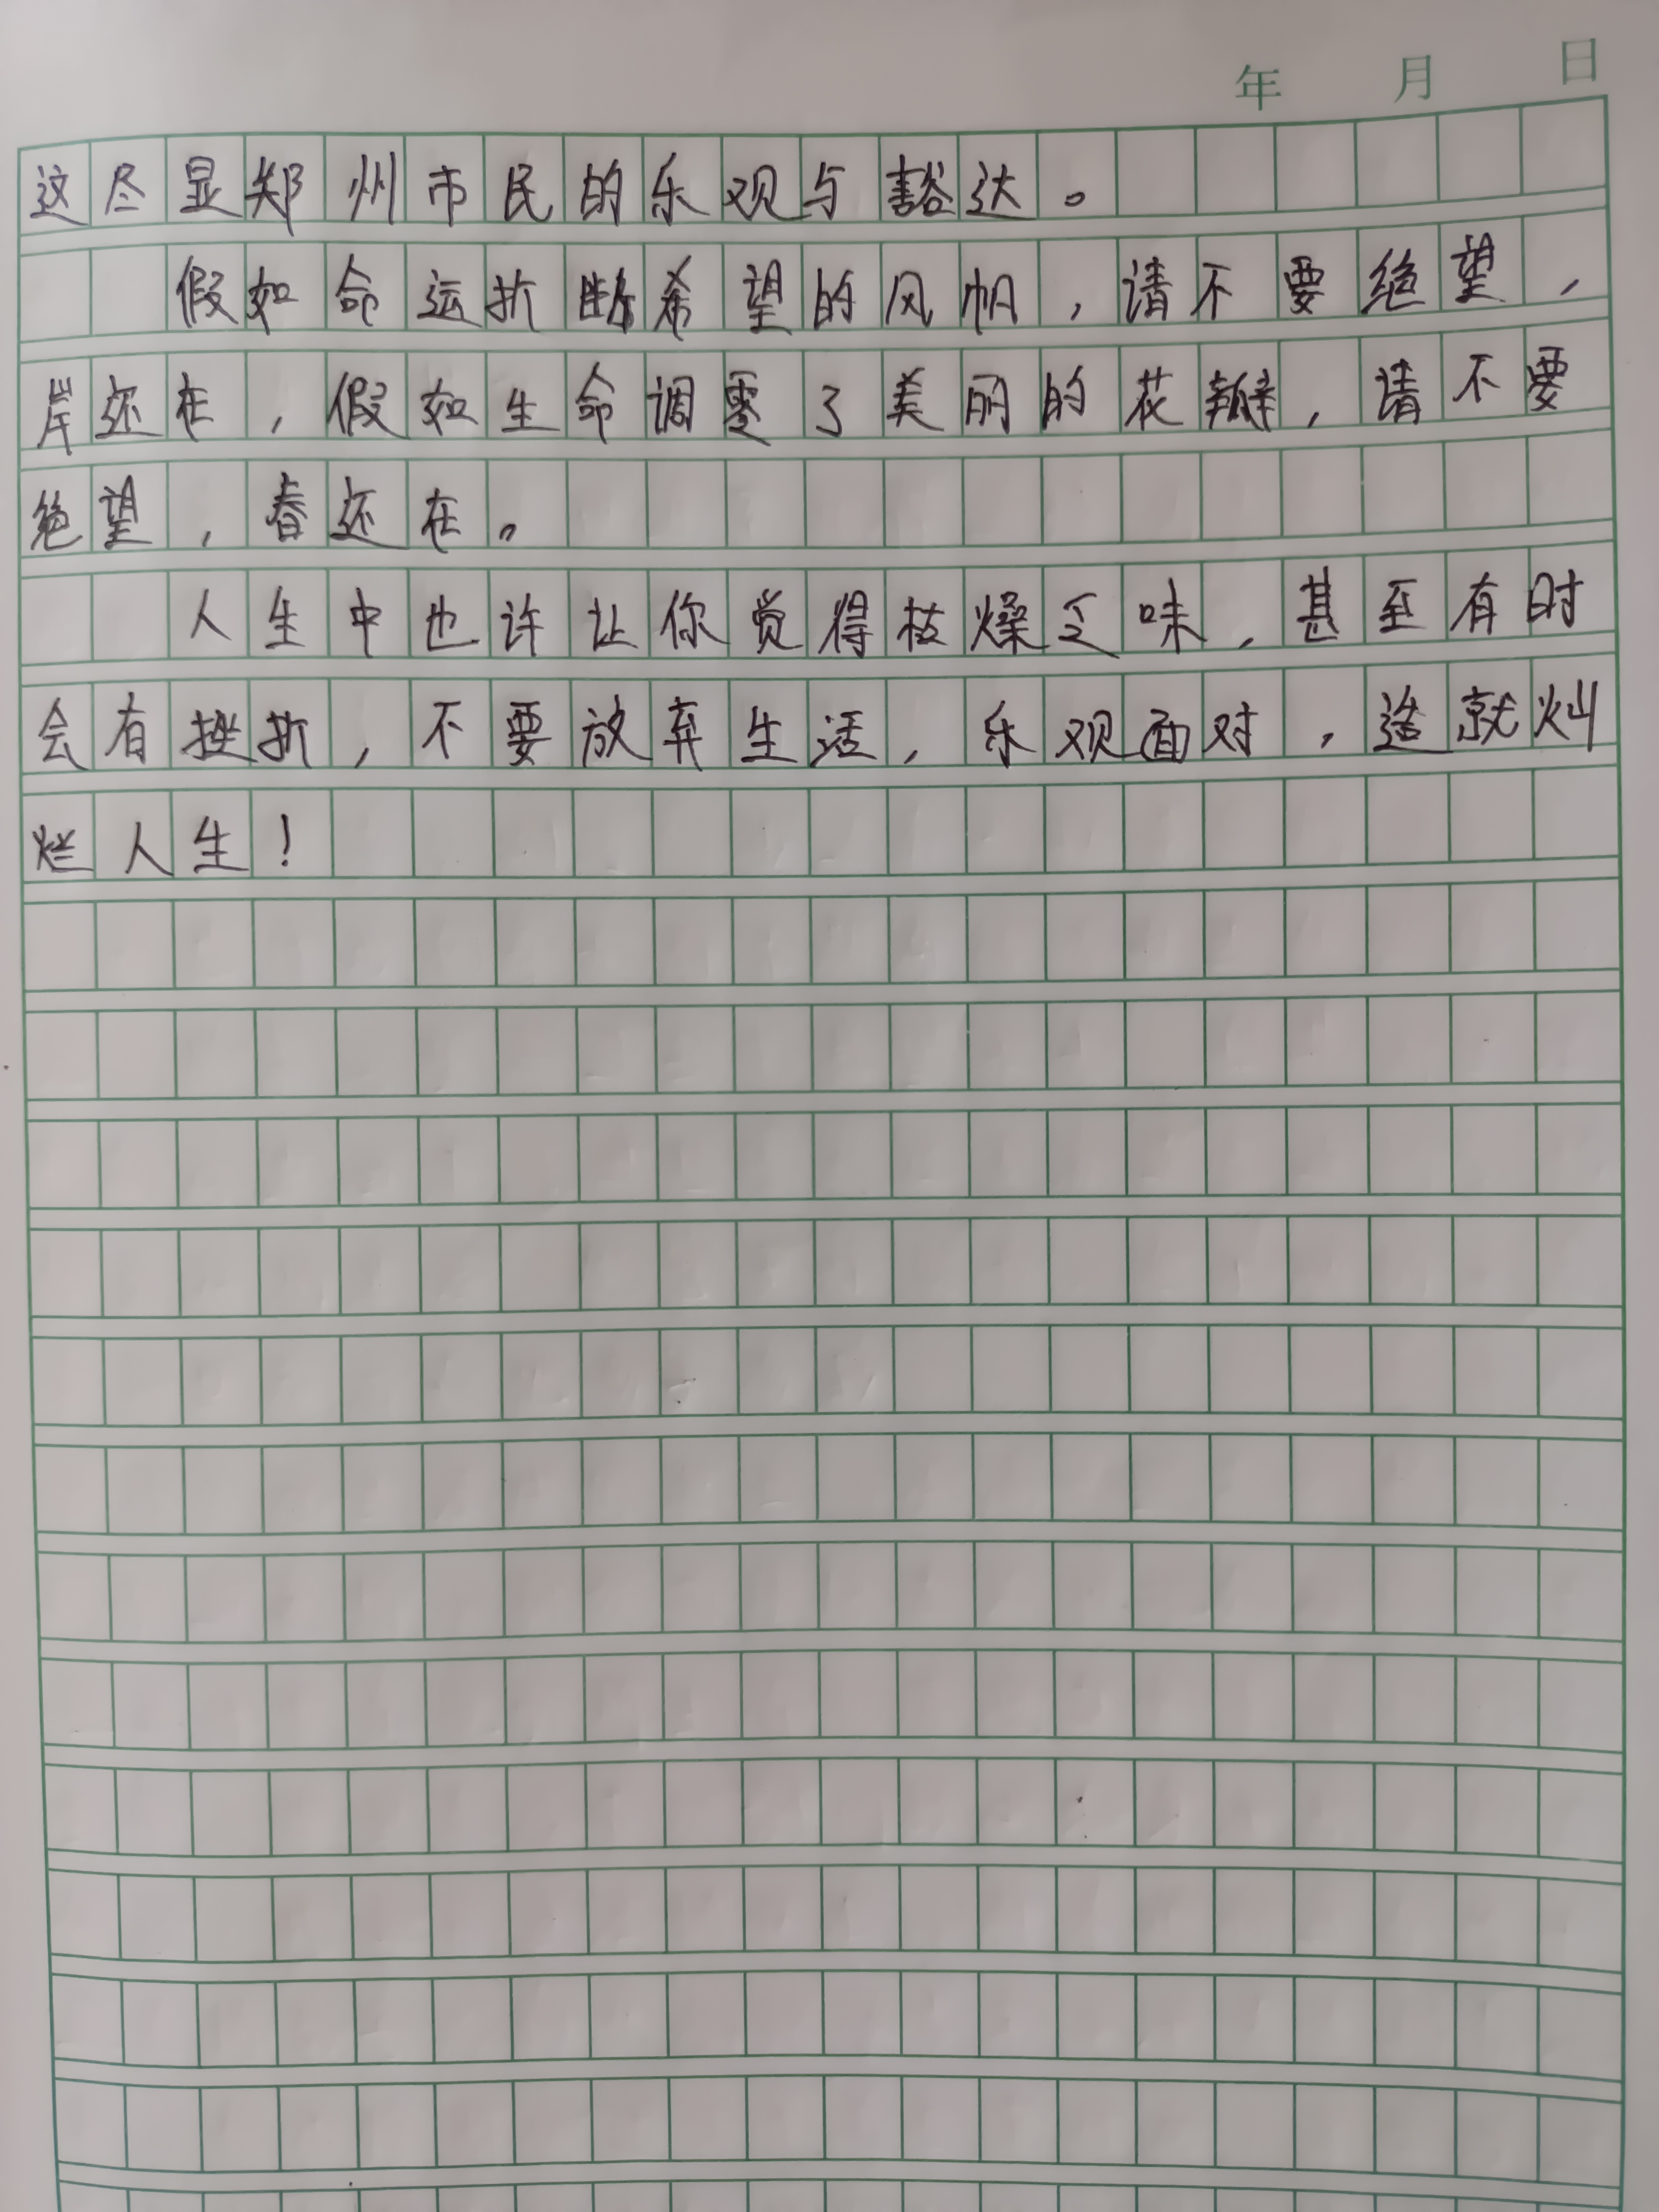 年 月 日
这尽显郑州市民的乐观与豁达。
假如命运折断希望的风帆,请不要绝望,
岸还在,假如生命调零了美丽的花瓣,请不要
绝望,春还在。
人生中也许让你觉得枝燥乏味,甚至有时
会有挫折,不要放弃生活,乐观面对,造就灿
烂人生!